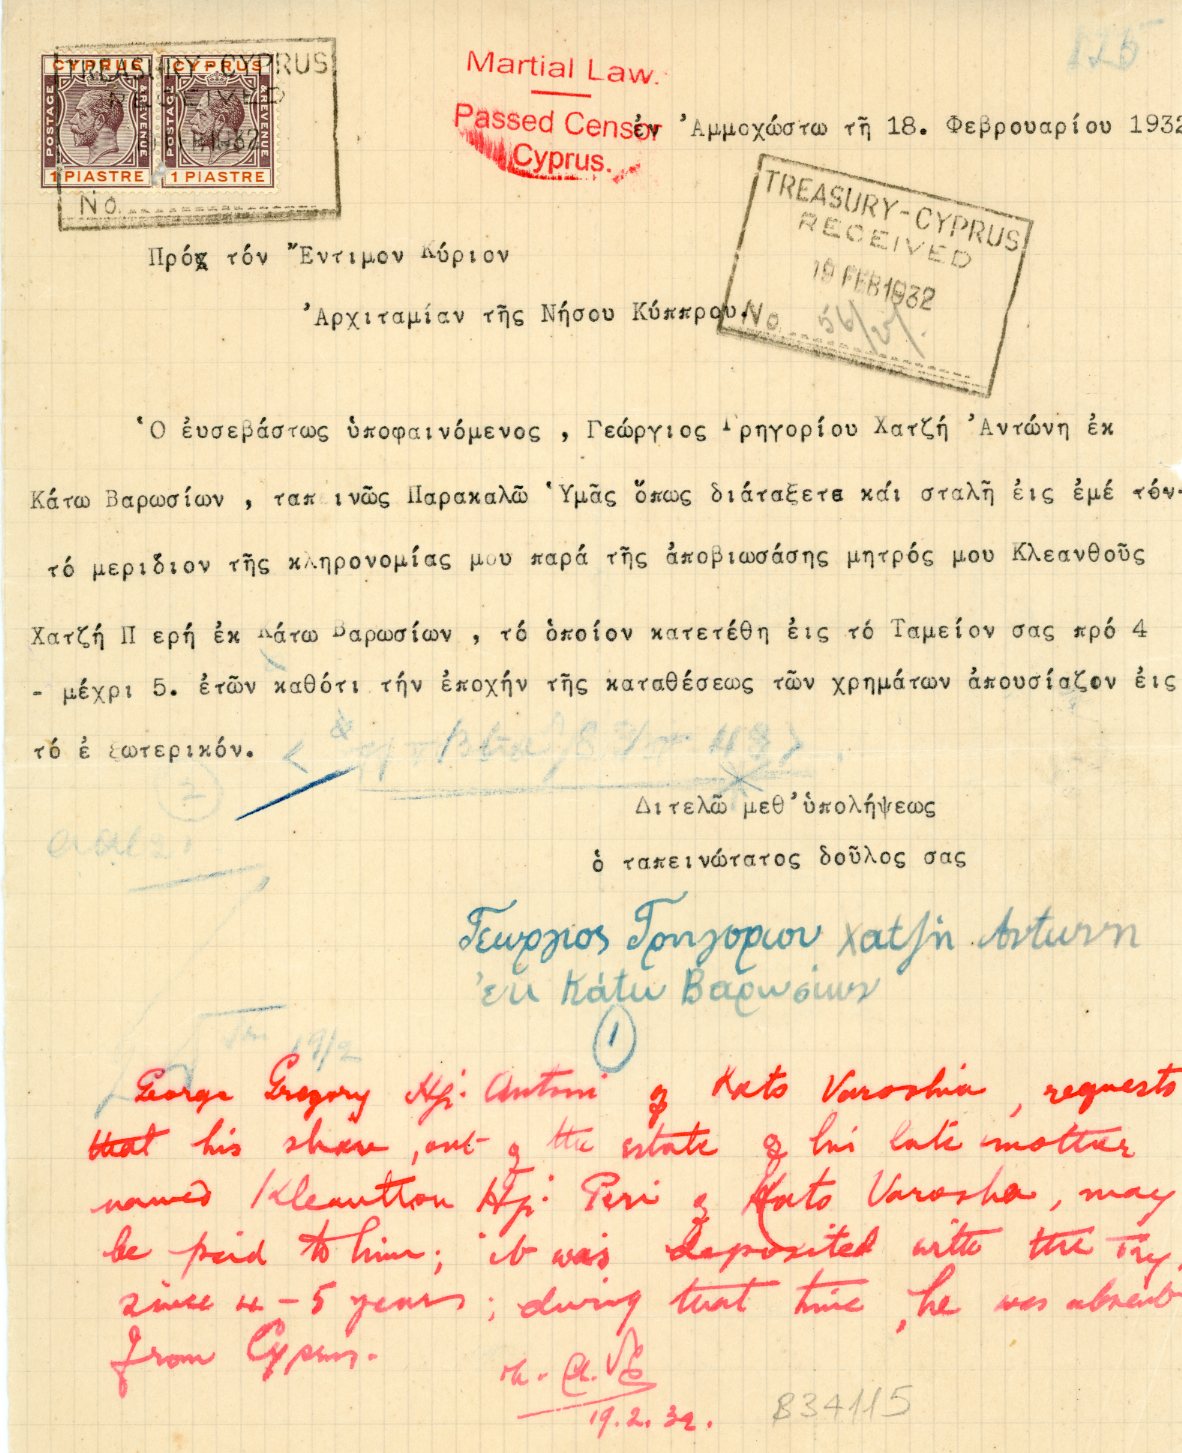 125
CYPRUS CYPRUS
POSTAGE & REVENUE POSTAGE & REVENUE
1 PIASTRE 1 PIASTRE
TREASURY-CYPRUS
RECEIVED
1932
No.
Martial Law.
Passed Censor
Cyprus.
ἐν Ἀμμοχώστω τῆ 18. Φεβρουαρίου 1932
TREASURY-CYPRUS
RECEIVED
19 FEB 1932
No.
Πρός τόν Ἔντιμον Κύριον
Ἀρχιταμίαν τῆς Νήσου Κύππρου.
Ὁ ἐυσεβάστως ὑποφαινόμενος , Γεώργιος Γρηγορίου Χατζή Ἀντώνη ἐκ
Κάτω Βαρωσίων , ταπεινῶς Παρακαλῶ Ὑμᾶς ὅπως διάταξετε κάι σταλῆ ἐις ἐμέ τόν
τό μερίδιον τῆς κληρονομίας μου παρά τῆς ἀποβιωσάσης μητρός μου Κλεανθοῦς
Χατζή Π ερή ἐκ Κάτω Βαρωσίων , τό ὁποίον κατετέθη ἐις τό Ταμείον σας πρό 4
- μέχρι 5. ἐτῶν καθότι τήν ἐποχήν τῆς καταθέσεως τῶν χρημάτων ἀπουσίαζον ἐις
τό ἐ ξωτερικόν.
Διτελῶ μεθ' ὑπολήψεως
ὁ ταπεινώτατος δοῦλος σας
Γεωργιος Γρηγοριου Χατζη Αντωνη
ἐκ Κάτω Βαρωσίων
1
19/2
George Gregory Hji. Antoni of Kato Varoshia, requests
that his share, out of the estate of his late mother
named Kleanthou Hji. Peri of Kato Varosha, may
be paid to him; it was deposited with the Try,
since 4-5 years; during that time, he was absent
from Cyprus.
19.2.32.
834115